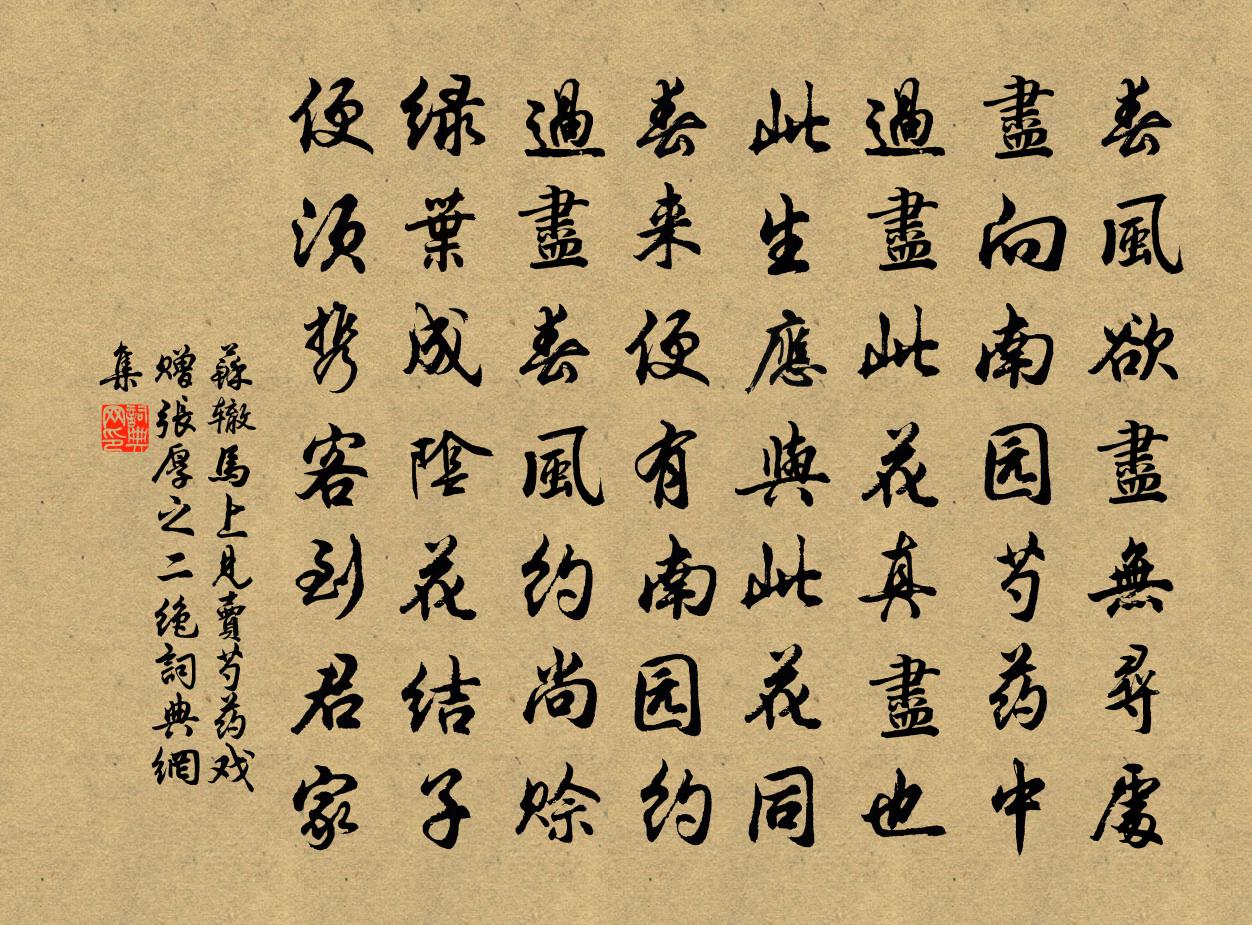 春風欲盡無尋處
盡向南园芍药中
過盡此花真盡也
此生應與此花同
春来便有南园约
過盡春風约尚赊
緑葉成陰花结子
便须携客到君家
蘇辙馬上見賣芍药戏
赠張厚之二绝詞典網
集
詞典网印